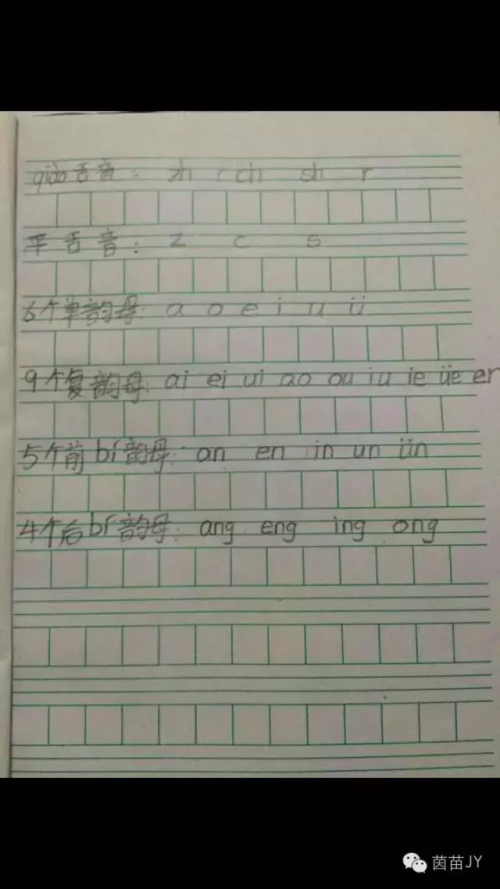 qiào舌音：zh ch sh r
平舌音：z c s
6个单韵母：a o e i u ü
9个复韵母：ai ei ui ao ou iu ie üe er
5个前bí韵母：an en in un ün
4个后bí韵母：ang eng ing ong
茵苗JY